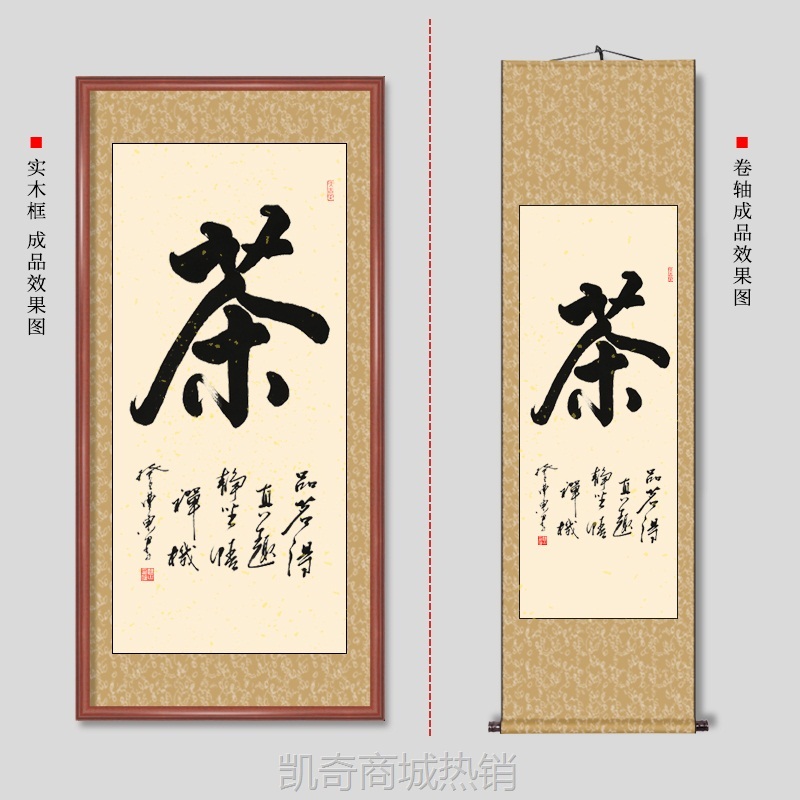 实木框 成品效果图
茶
品茗得
真趣
静坐悟
禅機
卷轴成品效果图
茶
品茗得
真趣
静坐悟
禅機
凯奇商城热销